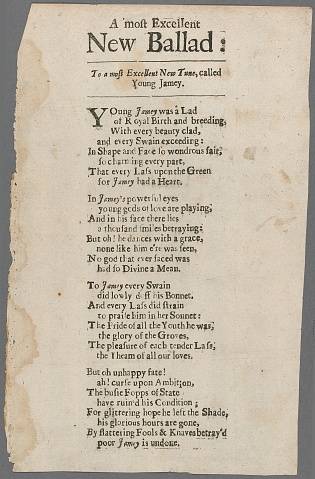 A moſt Excellent
New Ballad:
To a moſt Excellent New Tune, called
Young Jamey.
YOung Jamey was a Lad
of Royal Birth and breeding,
With every beauty clad,
and every Swain exceeding:
In Shape and Face ſo wondrous fair,
ſo charming every part,
That every Laſs upon the Green
for Jamey had a Heart.
In Jamey's powerful eyes
young gods of love are playing,
And in his face there lies
a thouſand ſmiles betraying:
But oh! he dances with a grace,
none like him e're was ſeen,
No god that ever faced was
had ſo Divine a Mean.
To Jamey every Swain
did lowly doff his Bonnet,
And every Laſs did ſtrain
to praiſe him in her Sonnet:
The Pride of all the Youth he was,
the glory of the Groves,
The pleaſure of each tender Laſs,
the Theam of all our loves.
But oh unhappy fate!
ah! curſe upon Ambition,
The buſie Fopps of State
have ruin'd his Condition;
For glittering hope he left the Shade,
his glorious hours are gone,
By flattering Fools & Knaves betray'd
poor Jamey is undone.